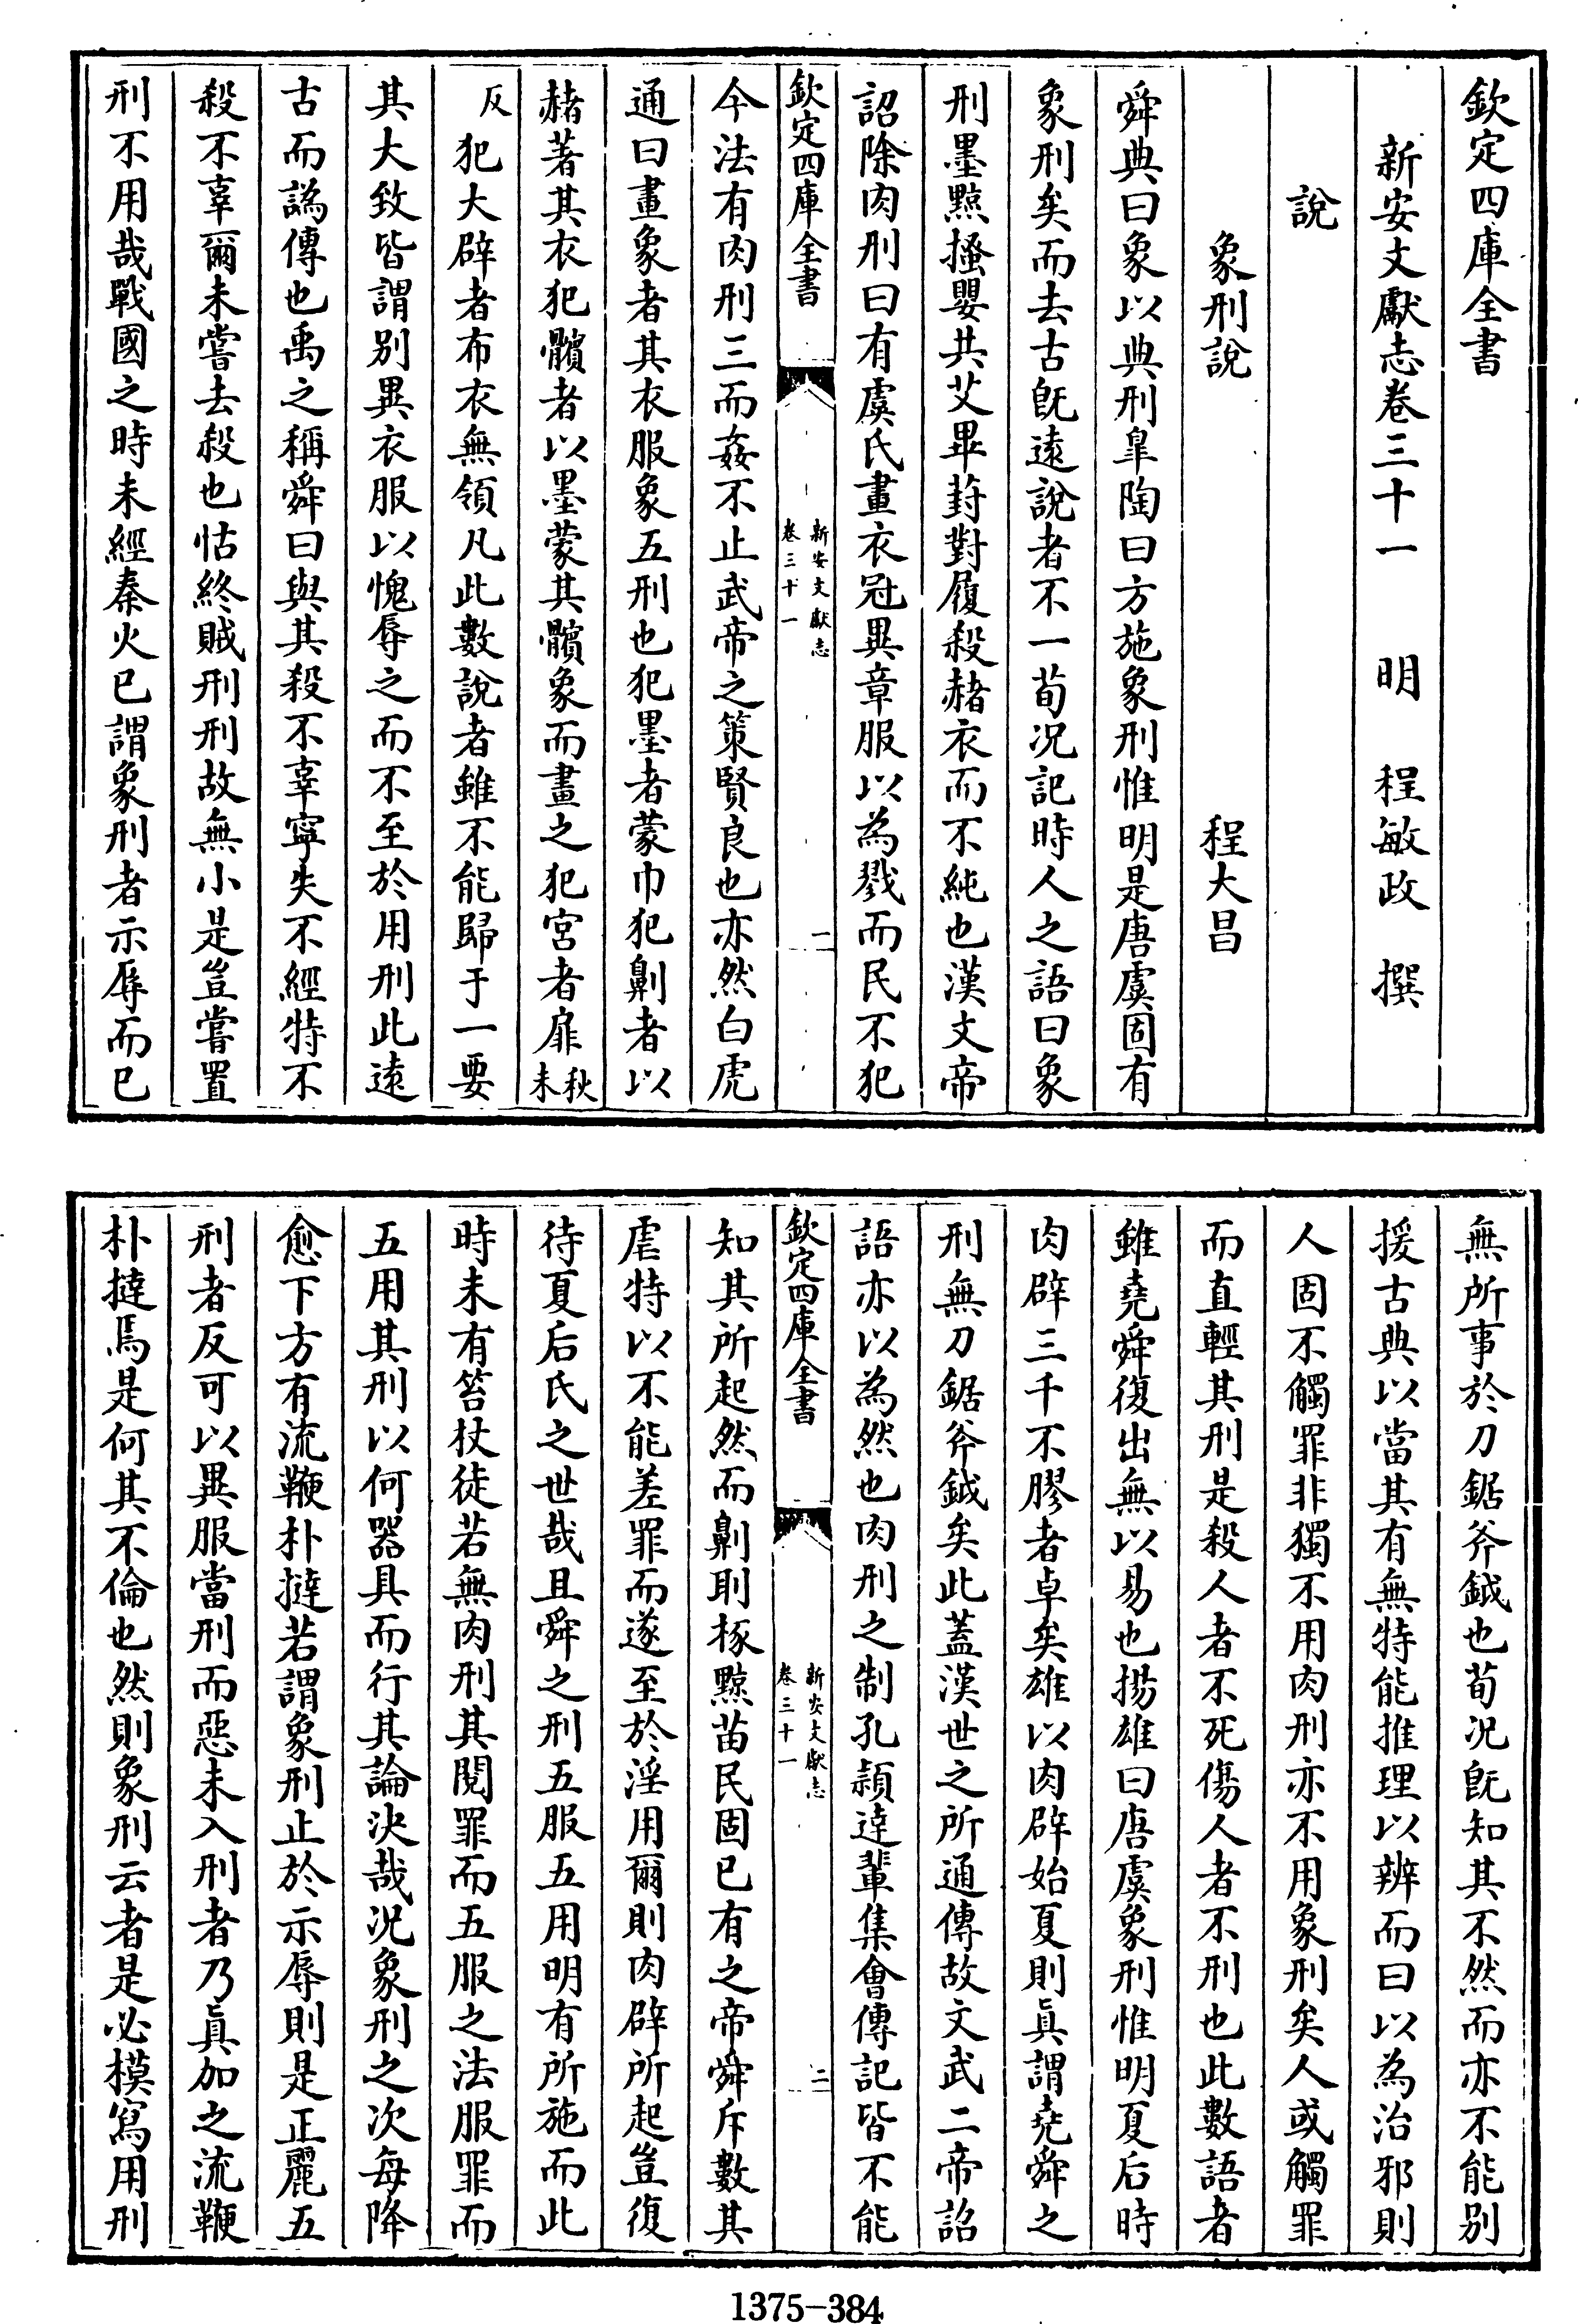 欽定四庫全書
新安文獻志卷三十一　明　程敏政　撰
說
象刑說　程大昌
舜典曰象以典刑皐陶曰方施象刑惟明是唐虞固有
象刑矣而去古旣遠說者不一荀況記時人之語曰象
刑墨黥搔嬰共艾畢菶對履殺赭衣而不純也漢文帝
詔除肉刑曰有虞氏畫衣冠異章服以為戮而民不犯
欽定四庫全書　新安文獻志卷三十一　一
今法有肉刑三而姦不止武帝之策賢良也亦然白虎
通曰畫象者其衣服象五刑也犯墨者蒙巾犯劓者以
赭著其衣犯髕者以墨蒙其髕象而畫之犯宮者扉秋未
反犯大辟者布衣無領凡此數說者雖不能歸于一要
其大致皆謂别異衣服以愧辱之而不至於用刑此遠
古而譌傳也禹之稱舜曰與其殺不辜寧失不經特不
殺不辜爾未嘗去殺也怙終賊刑刑故無小是豈嘗置
刑不用哉戰國之時未經秦火已謂象刑者示辱而已
無所事於刀鋸斧鉞也荀況旣知其不然而亦不能别
援古典以當其有無特能推理以辨而曰以為治邪則
人固不觸罪非獨不用肉刑亦不用象刑矣人或觸罪
而直輕其刑是殺人者不死傷人者不刑也此數語者
雖堯舜復出無以易也揚雄曰唐虞象刑惟明夏后時
肉辟三千不膠者卓矣雄以肉辟始夏則眞謂堯舜之
刑無刀鋸斧鉞矣此蓋漢世之所通傳故文武二帝詔
語亦以為然也肉刑之制孔頴逹輩集會傳記皆不能
欽定四庫全書　新安文獻志卷三十一　二
知其所起然而劓刵椓黥苗民固已有之帝舜斥數其
虐特以不能差罪而遂至於淫用爾則肉辟所起豈復
待夏后氏之世哉且舜之刑五服五用明有所施而此
時未有笞杖徒若無肉刑其閱罪而五服之法服罪而
五用其刑以何器具而行其論決哉況象刑之次每降
愈下方有流鞭朴撻若謂象刑止於示辱則是正麗五
刑者反可以異服當刑而惡未入刑者乃眞加之流鞭
朴撻焉是何其不倫也然則象刑云者是必模寫用刑
1375-384